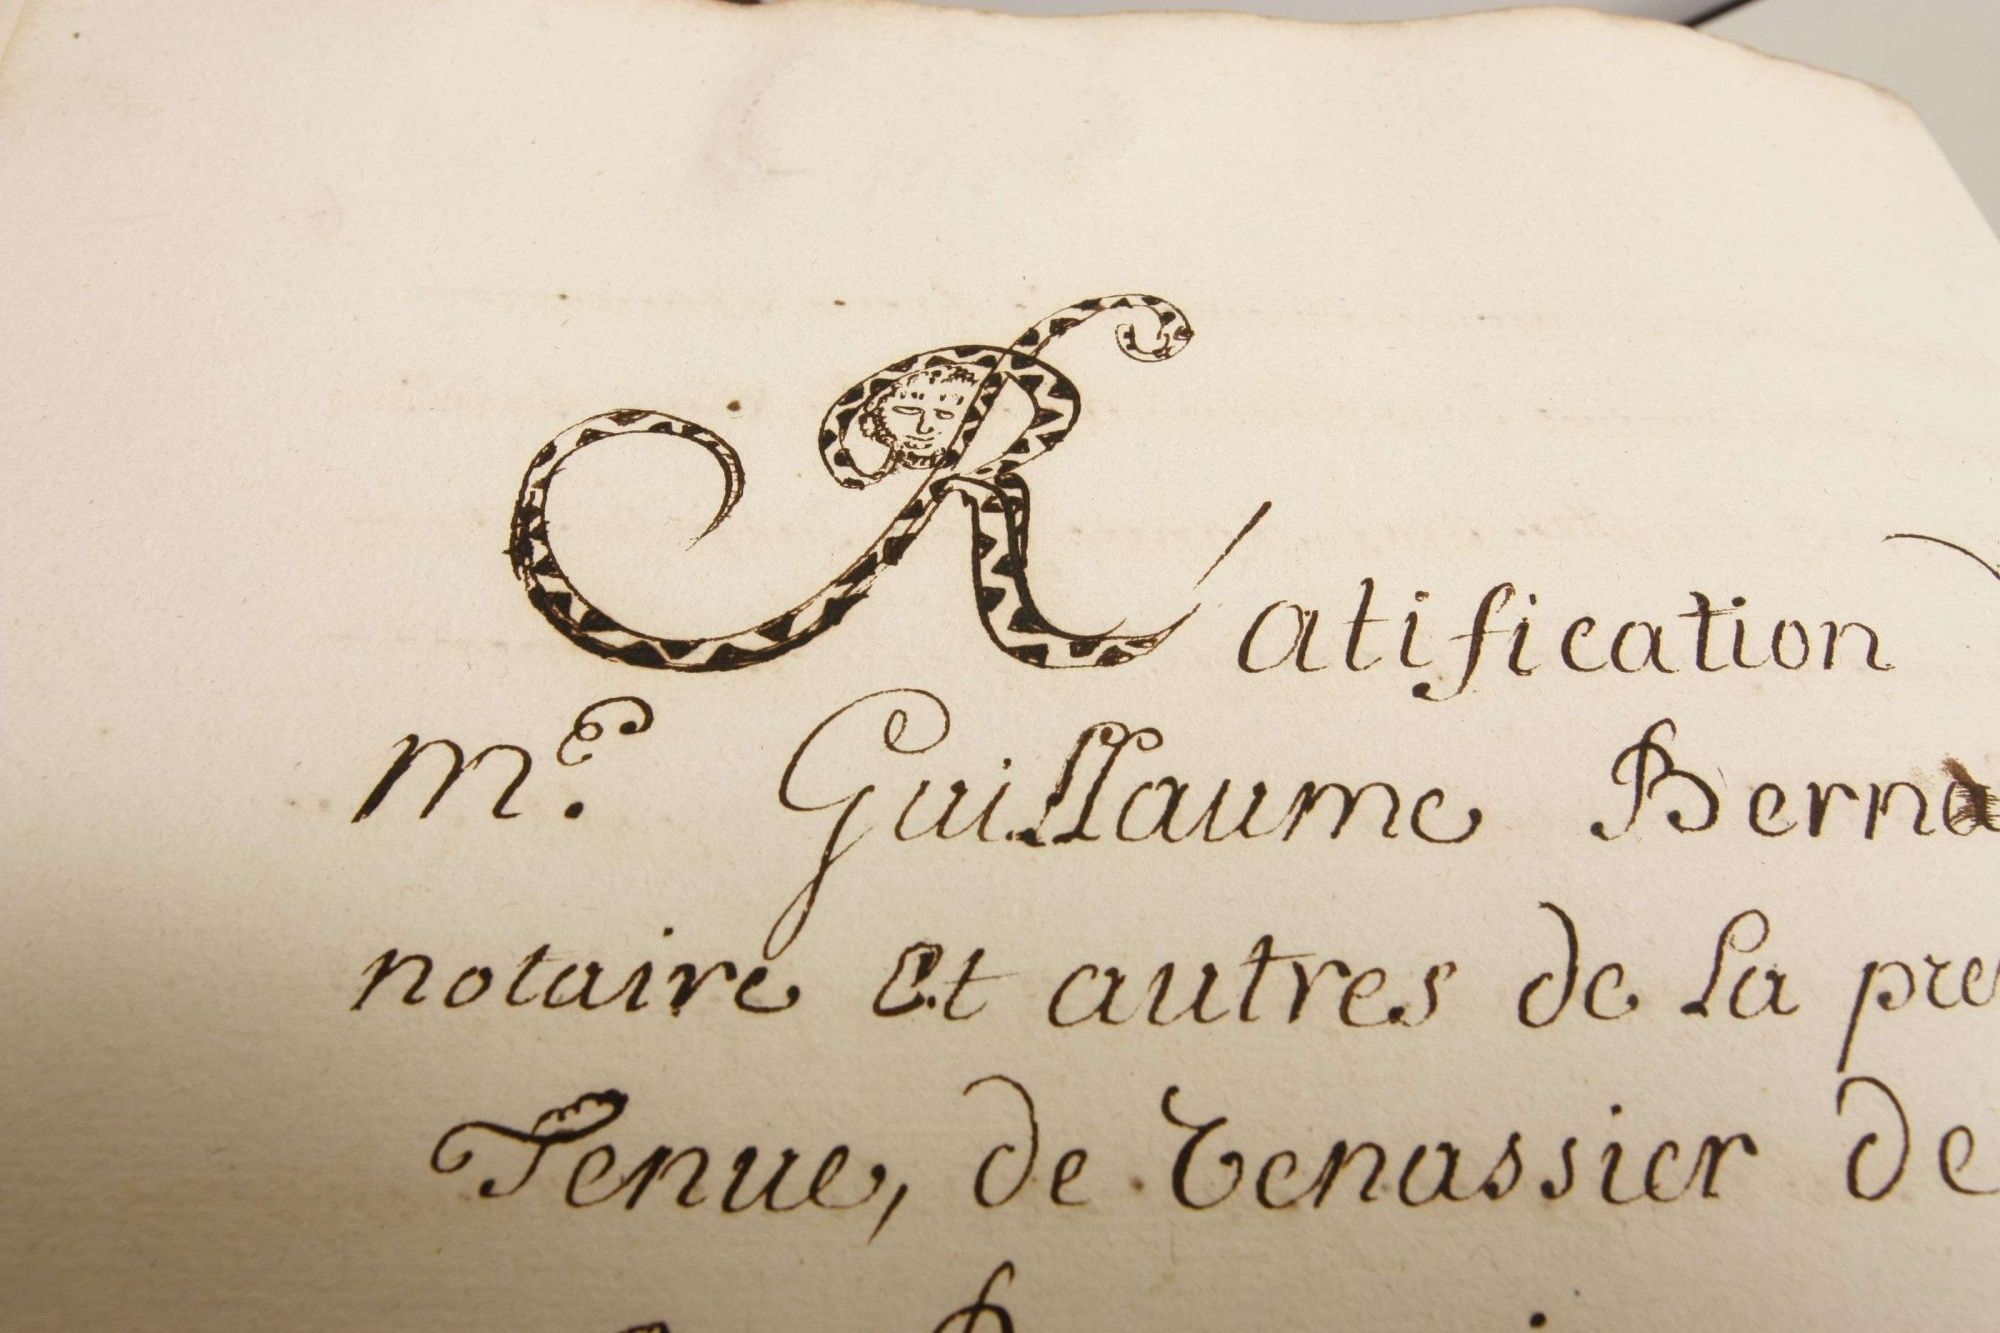 Ratification
Me. Guillaume Berna
notaire et autres de la pre
Tenue, de Tenassier de